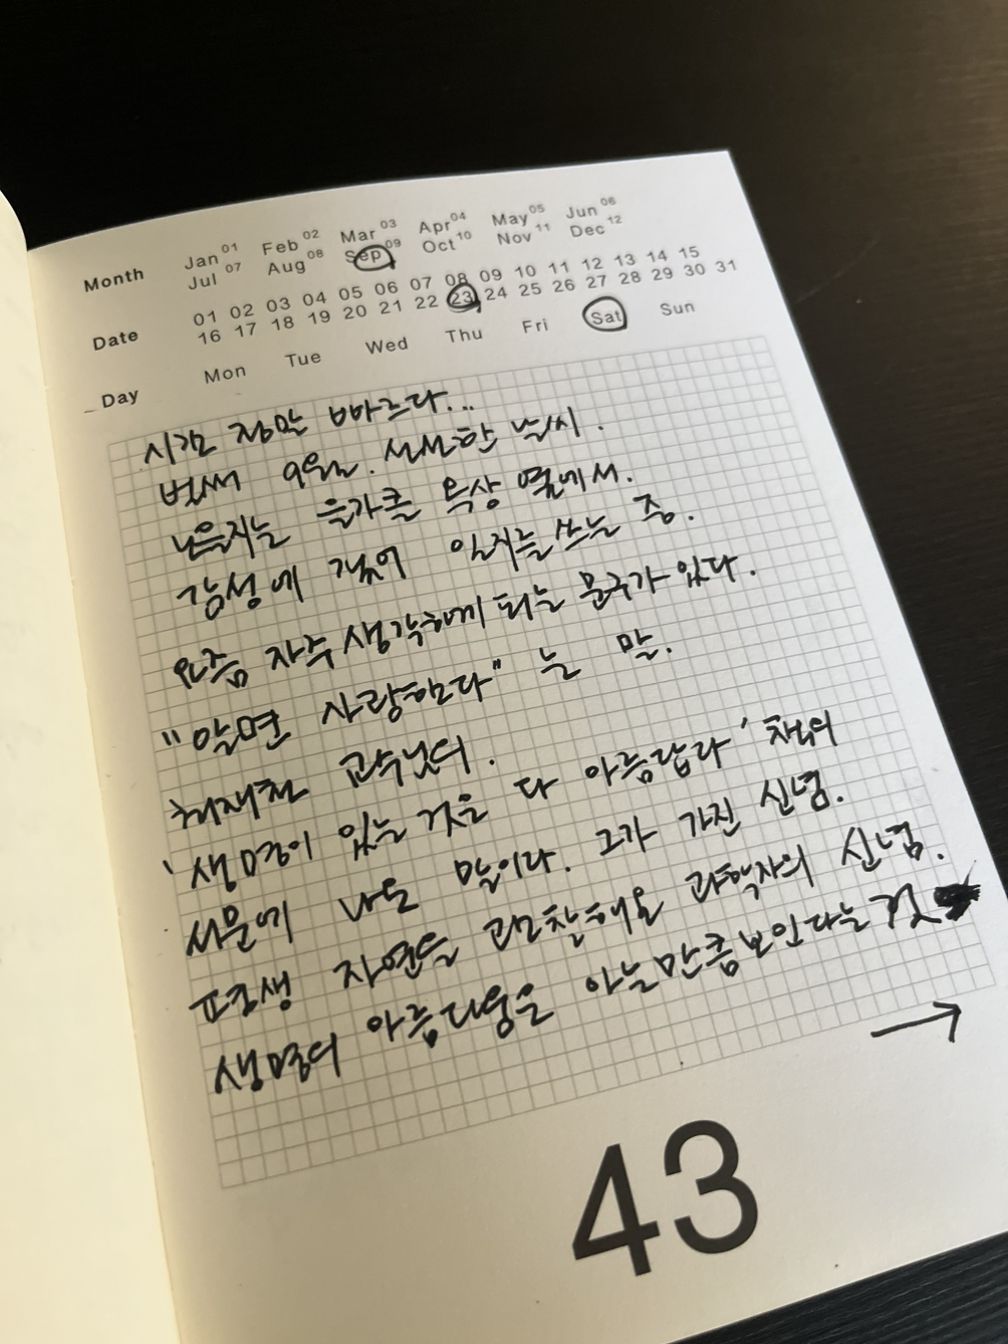 Month Jan 01 Feb 02 Mar 03 Apr 04 May 05 Jun 06
Jul 07 Aug 08 Sep 09 Oct 10 Nov 11 Dec 12
Date 01 02 03 04 05 06 07 08 09 10 11 12 13 14 15
16 17 18 19 20 21 22 23 24 25 26 27 28 29 30 31
Day Mon Tue Wed Thu Fri Sat Sun
시간 정말 빠르다...
벌써 9월. 선선한 날씨.
책상 옆에서.
감성에 젖어 일지를 쓰는 중.
요즘 자주 생각하게 되는 문구가 있다.
"알면 사랑한다" 는 말.
최재천 교수님의.
'생명이 있는 것은 다 아름답다' 책의
서문에 나온 말이다. 그가 가진 신념.
평생 자연을 관찰해온 과학자의 신념.
생명의 아름다움을 아는만큼 보인다는 것
→
43